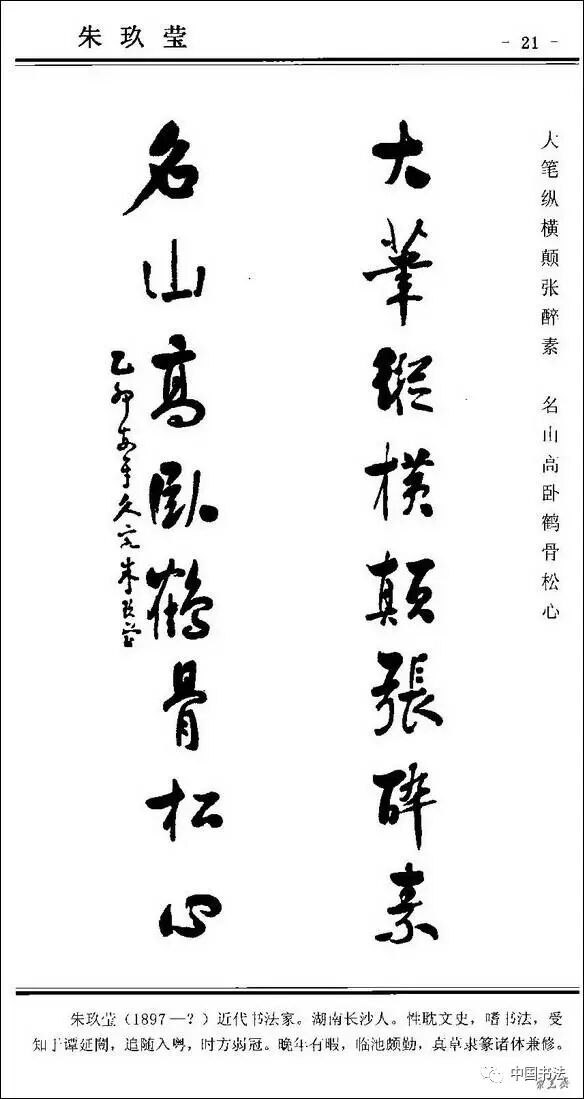 朱玖莹
- 21 -
大笔纵横颠张醉素 名山高卧鹤骨松心
大筆縱橫顛張醉素
名山高臥鶴骨松心
乙卯 朱玖莹
朱玖莹（1897—？）近代书法家。湖南长沙人。性耽文史，嗜书法，受
知于谭延闿，追随入粤，时方弱冠。晚年有暇，临池颇勤，真草隶篆诸体兼修。
中国书法